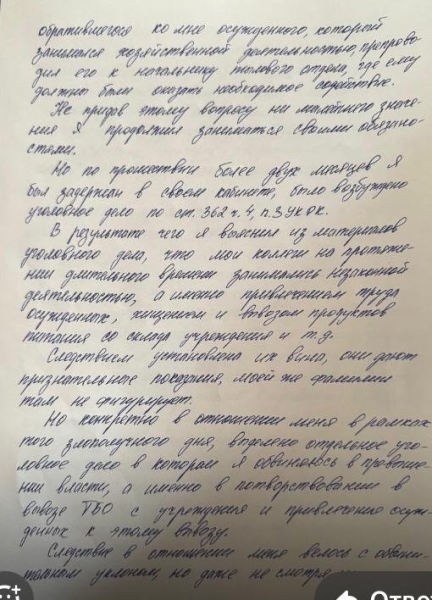 обратившегося ко мне осужденного, который
занимался хозяйственной деятельностью, препрово-
дил его к начальнику тылового отдела, где ему
должно были оказать необходимое содействие.
Не придав этому вопросу ни малейшего значе-
ния я продолжил заниматься своими обязано-
стями.
Но по прошествии более двух месяцев я
был задержан в своем кабинете, было возбуждено
уголовное дело по ст. 362 ч. 4, п. 3 УК РК.
В результате чего я выяснил из материалов
уголовного дела, что мои коллеги на протяже-
нии длительного времени занимались незаконной
деятельностью, а именно привлечением труда
осужденных, хищением и вывозом продуктов
питания со склада учреждения и т.д.
Следствием установлена их вина, они дают
признательные показания, моей же фамилии
там не фигурирует.
Но конкретно в отношении меня в рамках
того злополучного дня, выделено отдельное уго-
ловное дело в котором я обвиняюсь в превыше-
нии власти, а именно в потворствовании в
вывозе ТБО с учреждения и привлечение осуж-
денных к этому вывозу.
Следствие в отношении меня велось с обвини-
тельным уклоном, но даже не смотря
Ответ